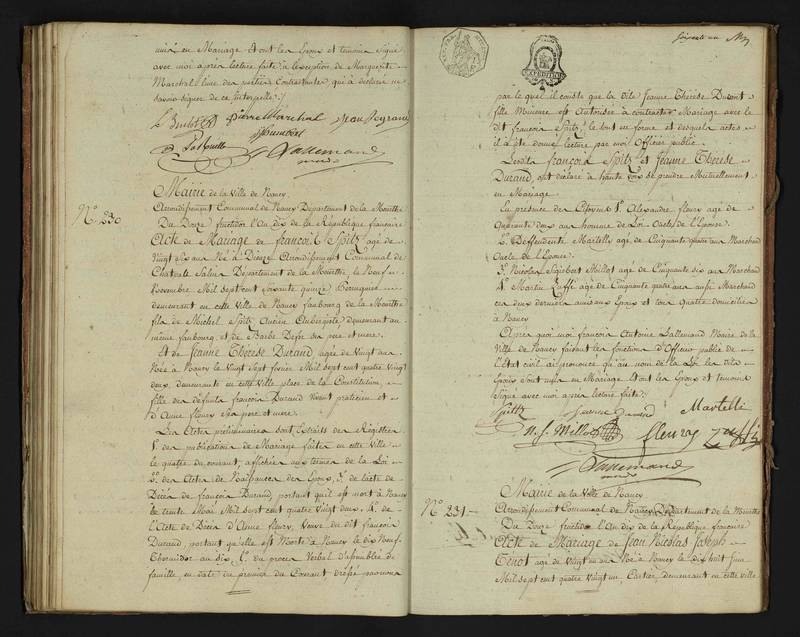 unis en Mariage et ont les Epoux et temoins signé
avec moi après lecture faite, à l'exception de Marguerite
Marchal l'une des parties Contractantes, qui a déclaré ne
savoir signer de ce interpellé ./.
Pierre Marchal Jean
Humbert
Lallemand
maire
N.° 230
Mairie de la Ville de Nancy
Arrondissement Communal de Nancy Département de la Meurthe
Du Douze fructidor l'An dix de la République francaise
Acte de Mariage de françois Spitz agé de
vingt six ans Né à Dieuze Arrondissement Communal de
Chateau Salins Département de la Meurthe, le Neuf
Novembre Mil sept cent soixante quinze Perruquier
demeurant en cette Ville de Nancy faubourg de la Meurthe
fils de Michel Spitz Ancien Aubergiste, demeurant au
même faubourg et de Barbe ses pere et mere.
Et de Jeanne Thérèse Durand, agée de Vingt ans
Née à Nancy le Vingt sept février Mil sept cent quatre Vingt
deux, demeurante en cette Ville place de la Constitution,
fille des défunts françois Durand Vivant praticien et
d'Anne fleury ses pere et mere.
Les Actes préliminaires sont Extraits des Régistres
1.° des publications de Mariage faites en cette Ville
le quatre du courant, affichées aux termes de la Loi
2.° des Actes de Naissances des Epoux, 3.° de l'acte de
Décès de françois Durand, portant qu'il est mort à Nancy
le trente Mai Mil sept cent quatre Vingt deux, 4.° de
l'Acte de Décès d'Anne fleury, Veuve du dit françois
Durand, portant qu'elle est Morte à Nancy le dix Neuf
Thermidor an dix, 5.° du procès Verbal d'assemblée de
famille, en date du premier du Courant dréssé
par le quel il conste que la dite Jeanne Thérèse Durand
fille Mineure est Autorisée à contracter Mariage avec le
dit françois Spitz, le tout en forme et desquels actes
il a été donné lecture par moi Officier public.
Lesdits françois Spitz et Jeanne Thérèse
Durand, ont déclaré à haute Voix se prendre Mutuellement
en Mariage.
En présence des Citoyens 1.° Alexandre fleury agé de
Quarante deux ans homme de Loi Oncle de l'Epouse.
2.° Deffendente Martelly agé de Cinquante quatre ans Marchand
Oncle de l'Epouse.
3.° Nicolas Sigisbert Millot agé de Cinquante six ans Marchand
4.° Martin Zuffi agé de Cinquante quatre ans aussi Marchand
ces deux derniers amis aux Epoux et tous quatre domiciliés
à Nancy
Après quoi moi francois Antoine Lallemand Maire de la
Ville de Nancy faisant les fonctions d'Officier public de
l'Etat civil ai prononcé qu'au nom de la Loi les dits
Epoux sont unis en Mariage et ont les Epoux et temoins
signé avec moi après lecture faite ./.
Spitz Jeanne Durand Martelli
N. S. Millot fleury Zuffi
Lallemand
maire
N.° 231
Mairie de la Ville de Nancy
Arrondissement Communal de Nancy Département de la Meurthe
Du Douze fructidor l'An dix de la République francaise
Acte de Mariage de Jean Nicolas Joseph
agé de Vingt un ans Né à Nancy le dix huit Juin
Mil sept cent quatre Vingt un, Cartier demeurant en cette Ville